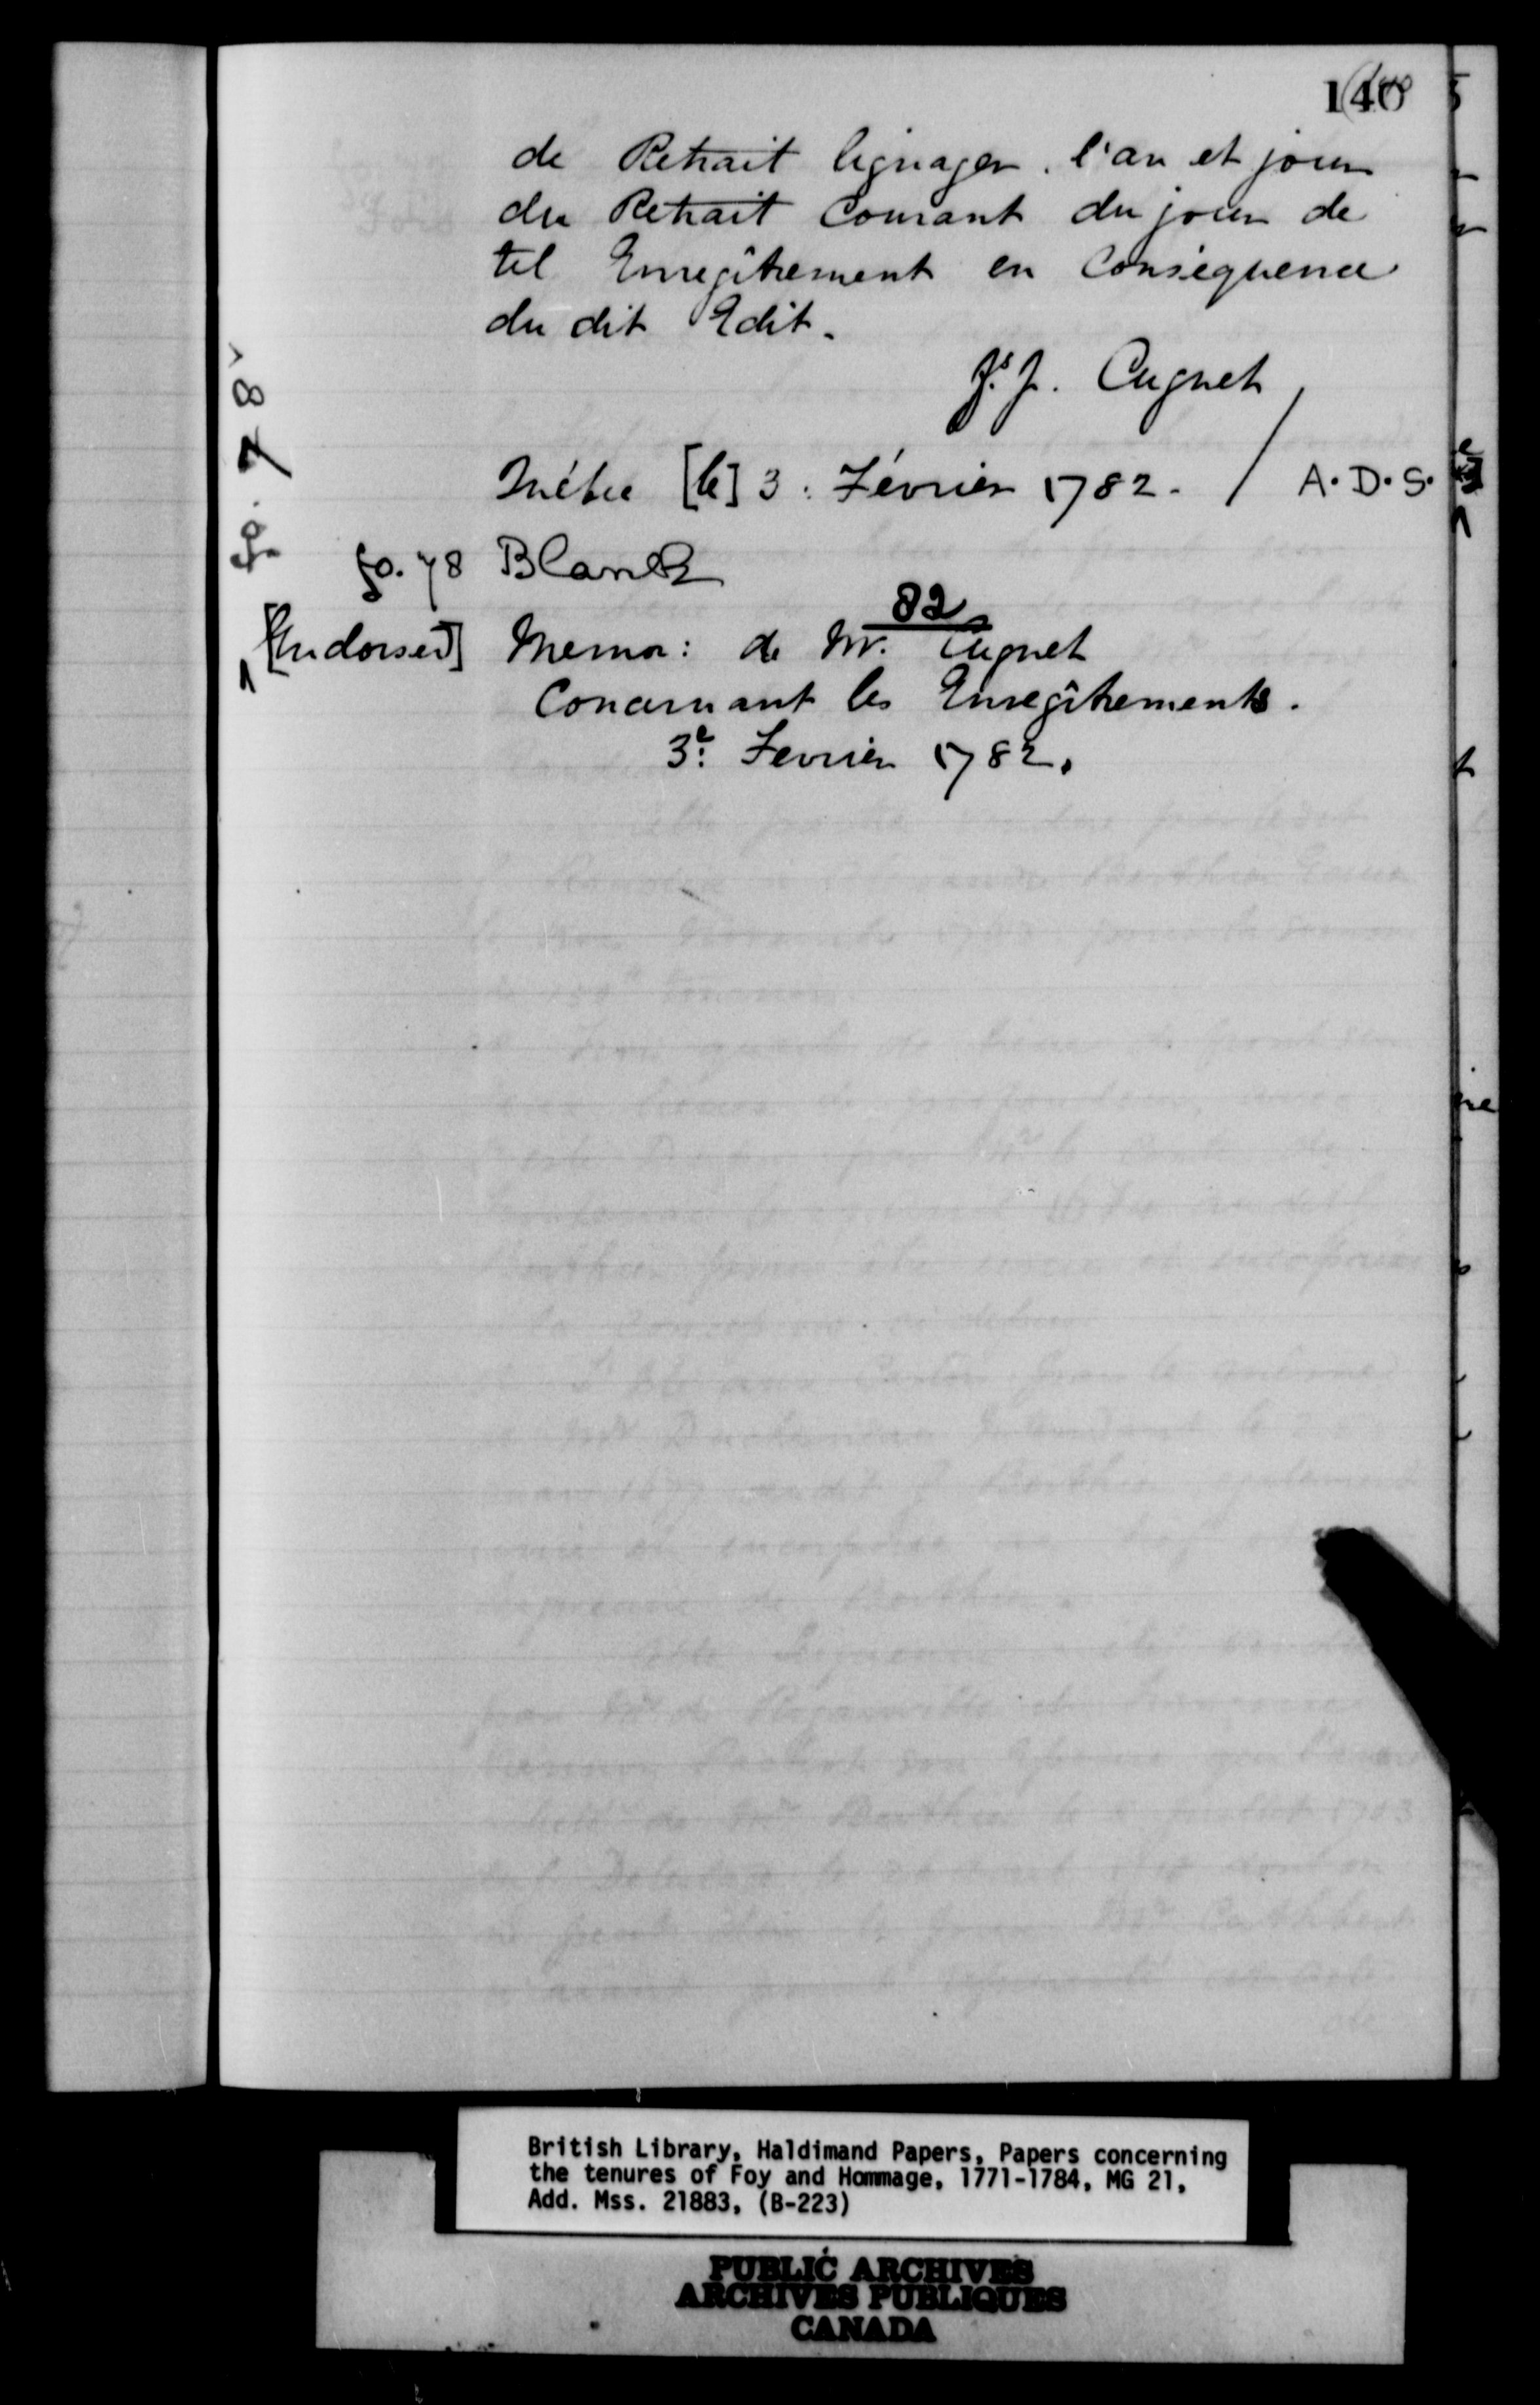 140
de Retrait lignager. l'an et jour
du Retrait Courant du jour de
tel Enregîtrement en Conséquence
du dit Edit.
Js. J. Cugnet
Québec [le] 3. Février 1782. / A.D.S.
fo. 78v
fo. 78 Blank
82
[Endorsed] Memor: de Mr. Cugnet
Concernant les Enregîtrements.
3e. Fevrier 1782.
British Library, Haldimand Papers, Papers concerning
the tenures of Foy and Hommage, 1771-1784, MG 21,
Add. Mss. 21883, (B-223)
PUBLIC ARCHIVES
ARCHIVES PUBLIQUES
CANADA